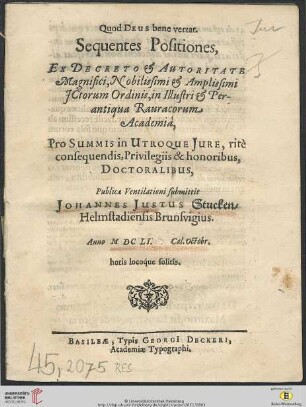 Quod DEUS bene vertat.
Sequentes Positiones,
EX DECRETO & AUTORITATE
Magnifici, Nobilissimi & Amplissimi
JCtorum Ordinis, in Illustri & Per-
antiqua Rauracorum
Academiâ,
PRO SUMMIS IN UTROQUE JURE, ritè
consequendis, Privilegiis & honoribus,
DOCTORALIBUS,
Publicæ Ventilationi submittit
JOHANNES JUSTUS Stucken/
Helmstadiensis Brunsvigius.
Anno M. DC LI. Cal. Octobr.
horis locoque solitis.
BASILEÆ, Typis GEORGI DECKERI,
Academiæ Typographi.
45, 2075 RES